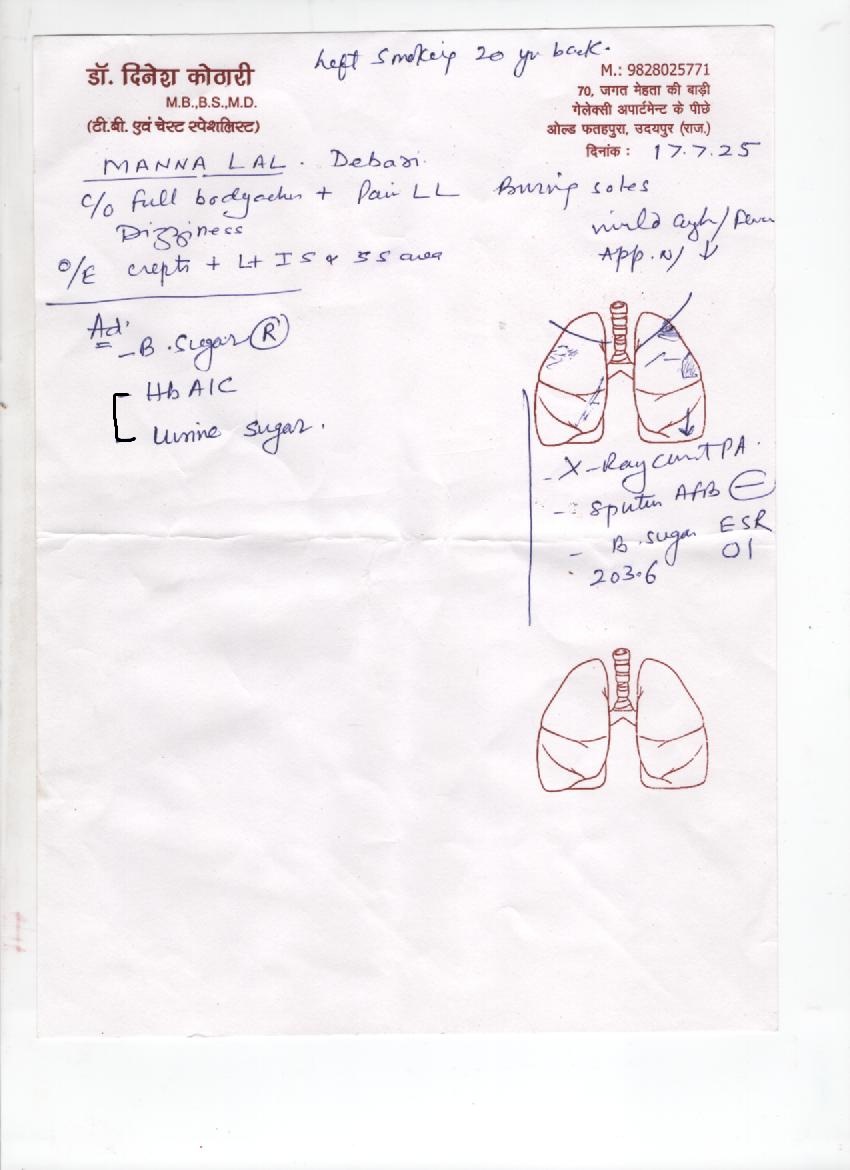 Left Smoking 20 yr back.
डॉ. दिनेश कोठारी
M.B.,B.S.,M.D.
(टी.बी. एवं चेस्ट स्पेशलिस्ट)
M.: 9828025771
70, जगत मेहता की बाड़ी
गेलेक्सी अपार्टमेन्ट के पीछे
ओल्ड फतहपुरा, उदयपुर (राज.)
दिनांक : 17.7.25
MANNA LAL. Debari.
C/O Full bodyaches + Pain LL Burning soles
Dizziness
mild cough/Fever
App. N/↓
O/E crepts + Lt IS & SS area
Ad'
- B. Sugar (R)
HbA1C
Urine Sugar.
- X-Ray chest PA.
- Sputum AFB (-)
- B. sugar ESR
203.6 01